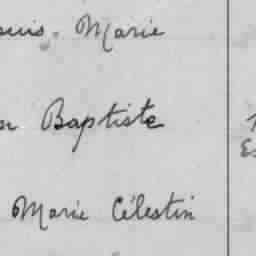 Marie
Baptiste
Marie Célestin